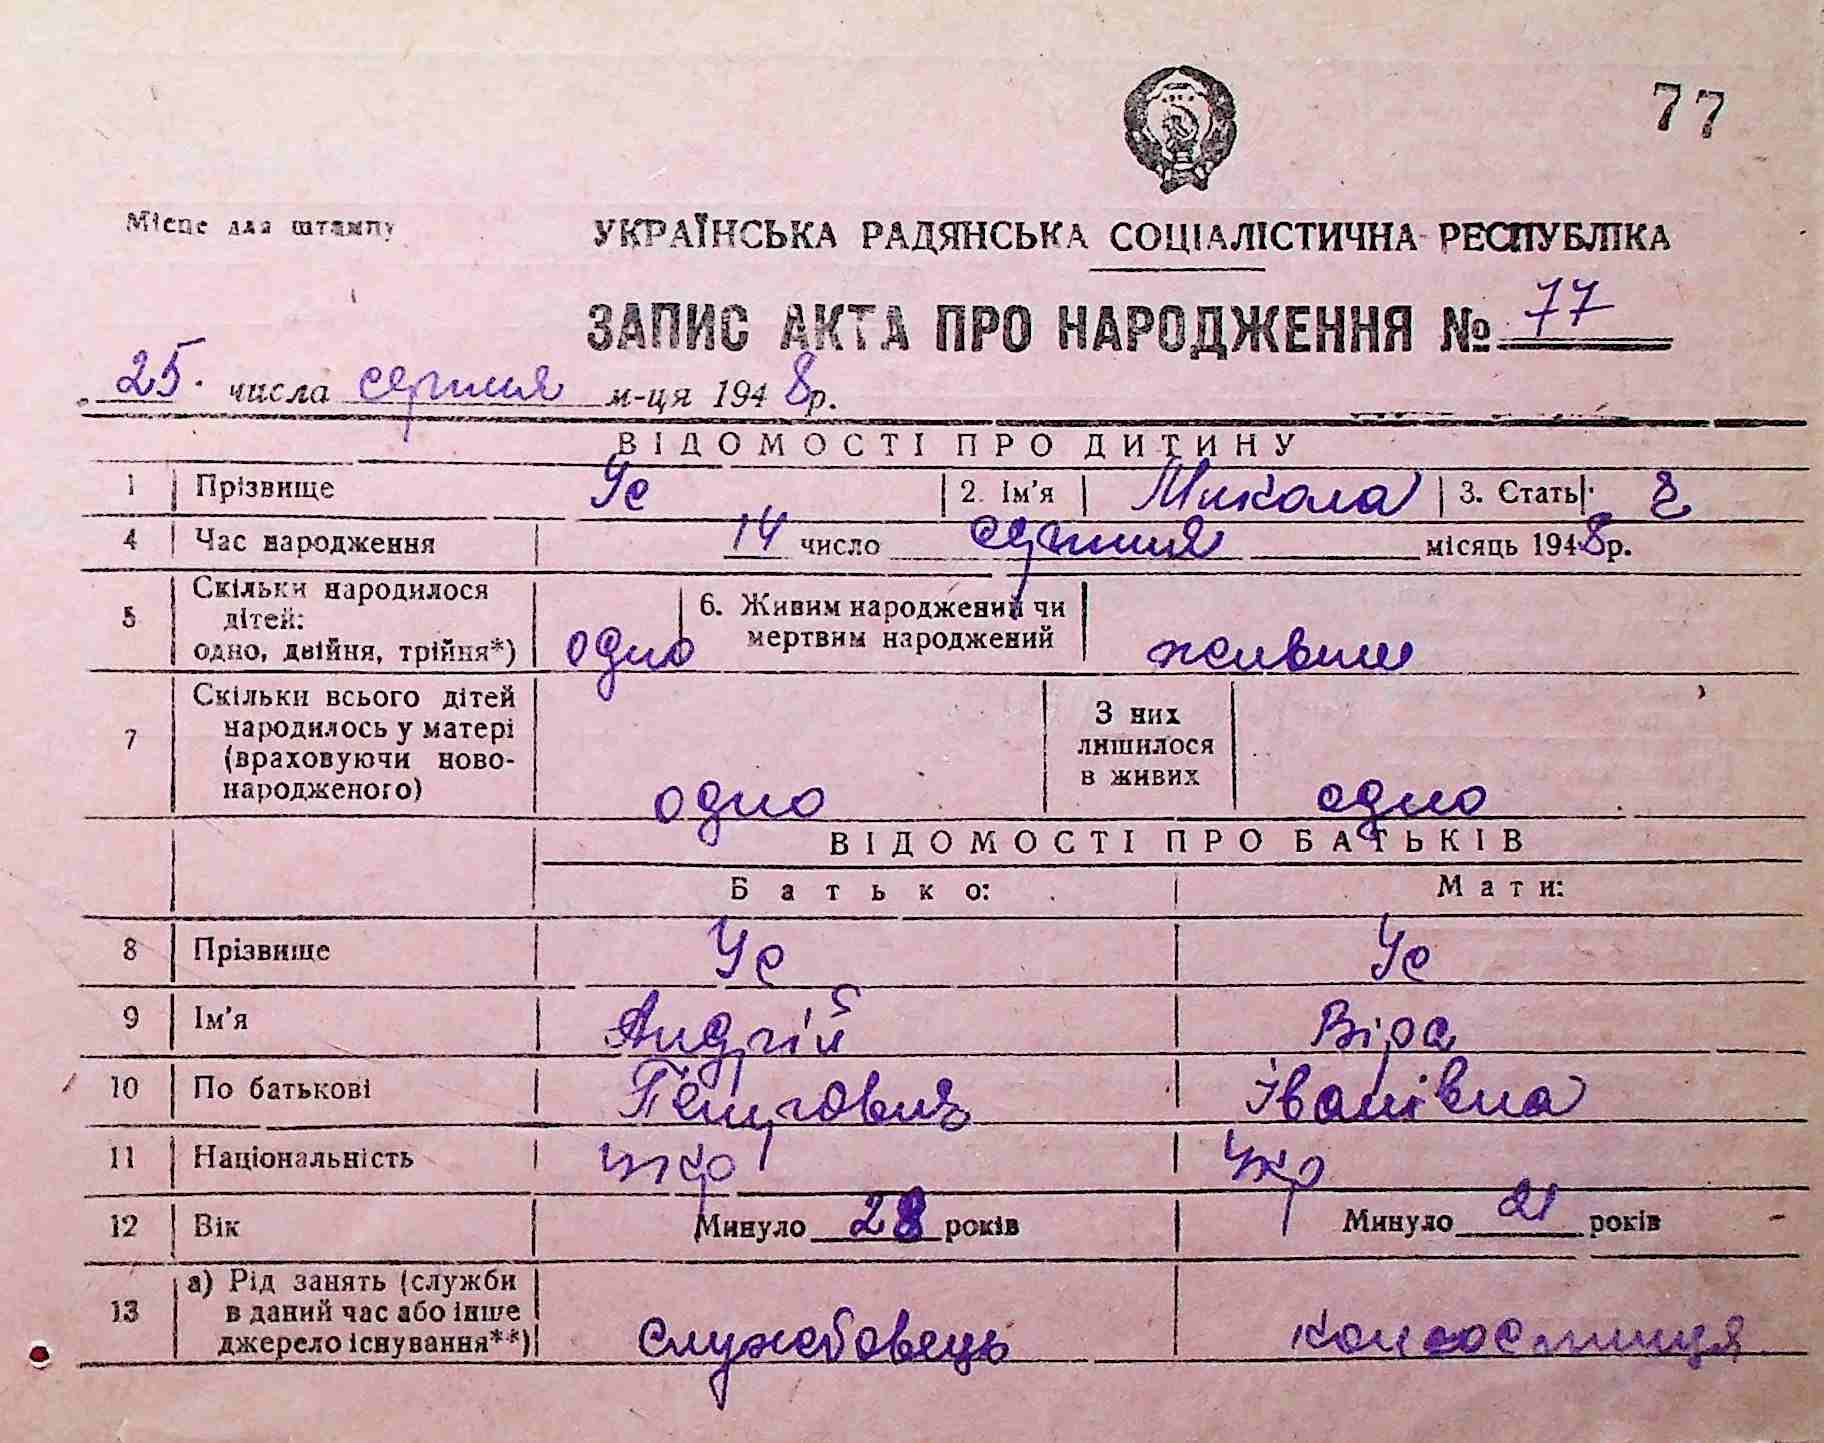 77
Місце для штампу
УКРАЇНСЬКА РАДЯНСЬКА СОЦІАЛІСТИЧНА РЕСПУБЛІКА
ЗАПИС АКТА ПРО НАРОДЖЕННЯ № 77
25 числа серпня м-ця 1948 р.
ВІДОМОСТІ ПРО ДИТИНУ
1 Прізвище Ус 2. Ім'я Микола 3. Стать ч
4 Час народження 14 число серпня місяць 1948 р.
Скільки народилося
5 дітей: 6. Живим народжений чи
одно, двійня, трійня*) одно мертвим народжений живим
Скільки всього дітей
народилось у матері З них
7 (враховуючи ново- лишилося
народженого) одно в живих одно
ВІДОМОСТІ ПРО БАТЬКІВ
Батько: Мати:
8 Прізвище Ус Ус
9 Ім'я Андрій Віра
10 По батькові Петрович Іванівна
11 Національність укр укр
12 Вік Минуло 28 років Минуло 21 років
а) Рід занять (служби
13 в даний час або інше
джерело існування**) службовець колгоспниця